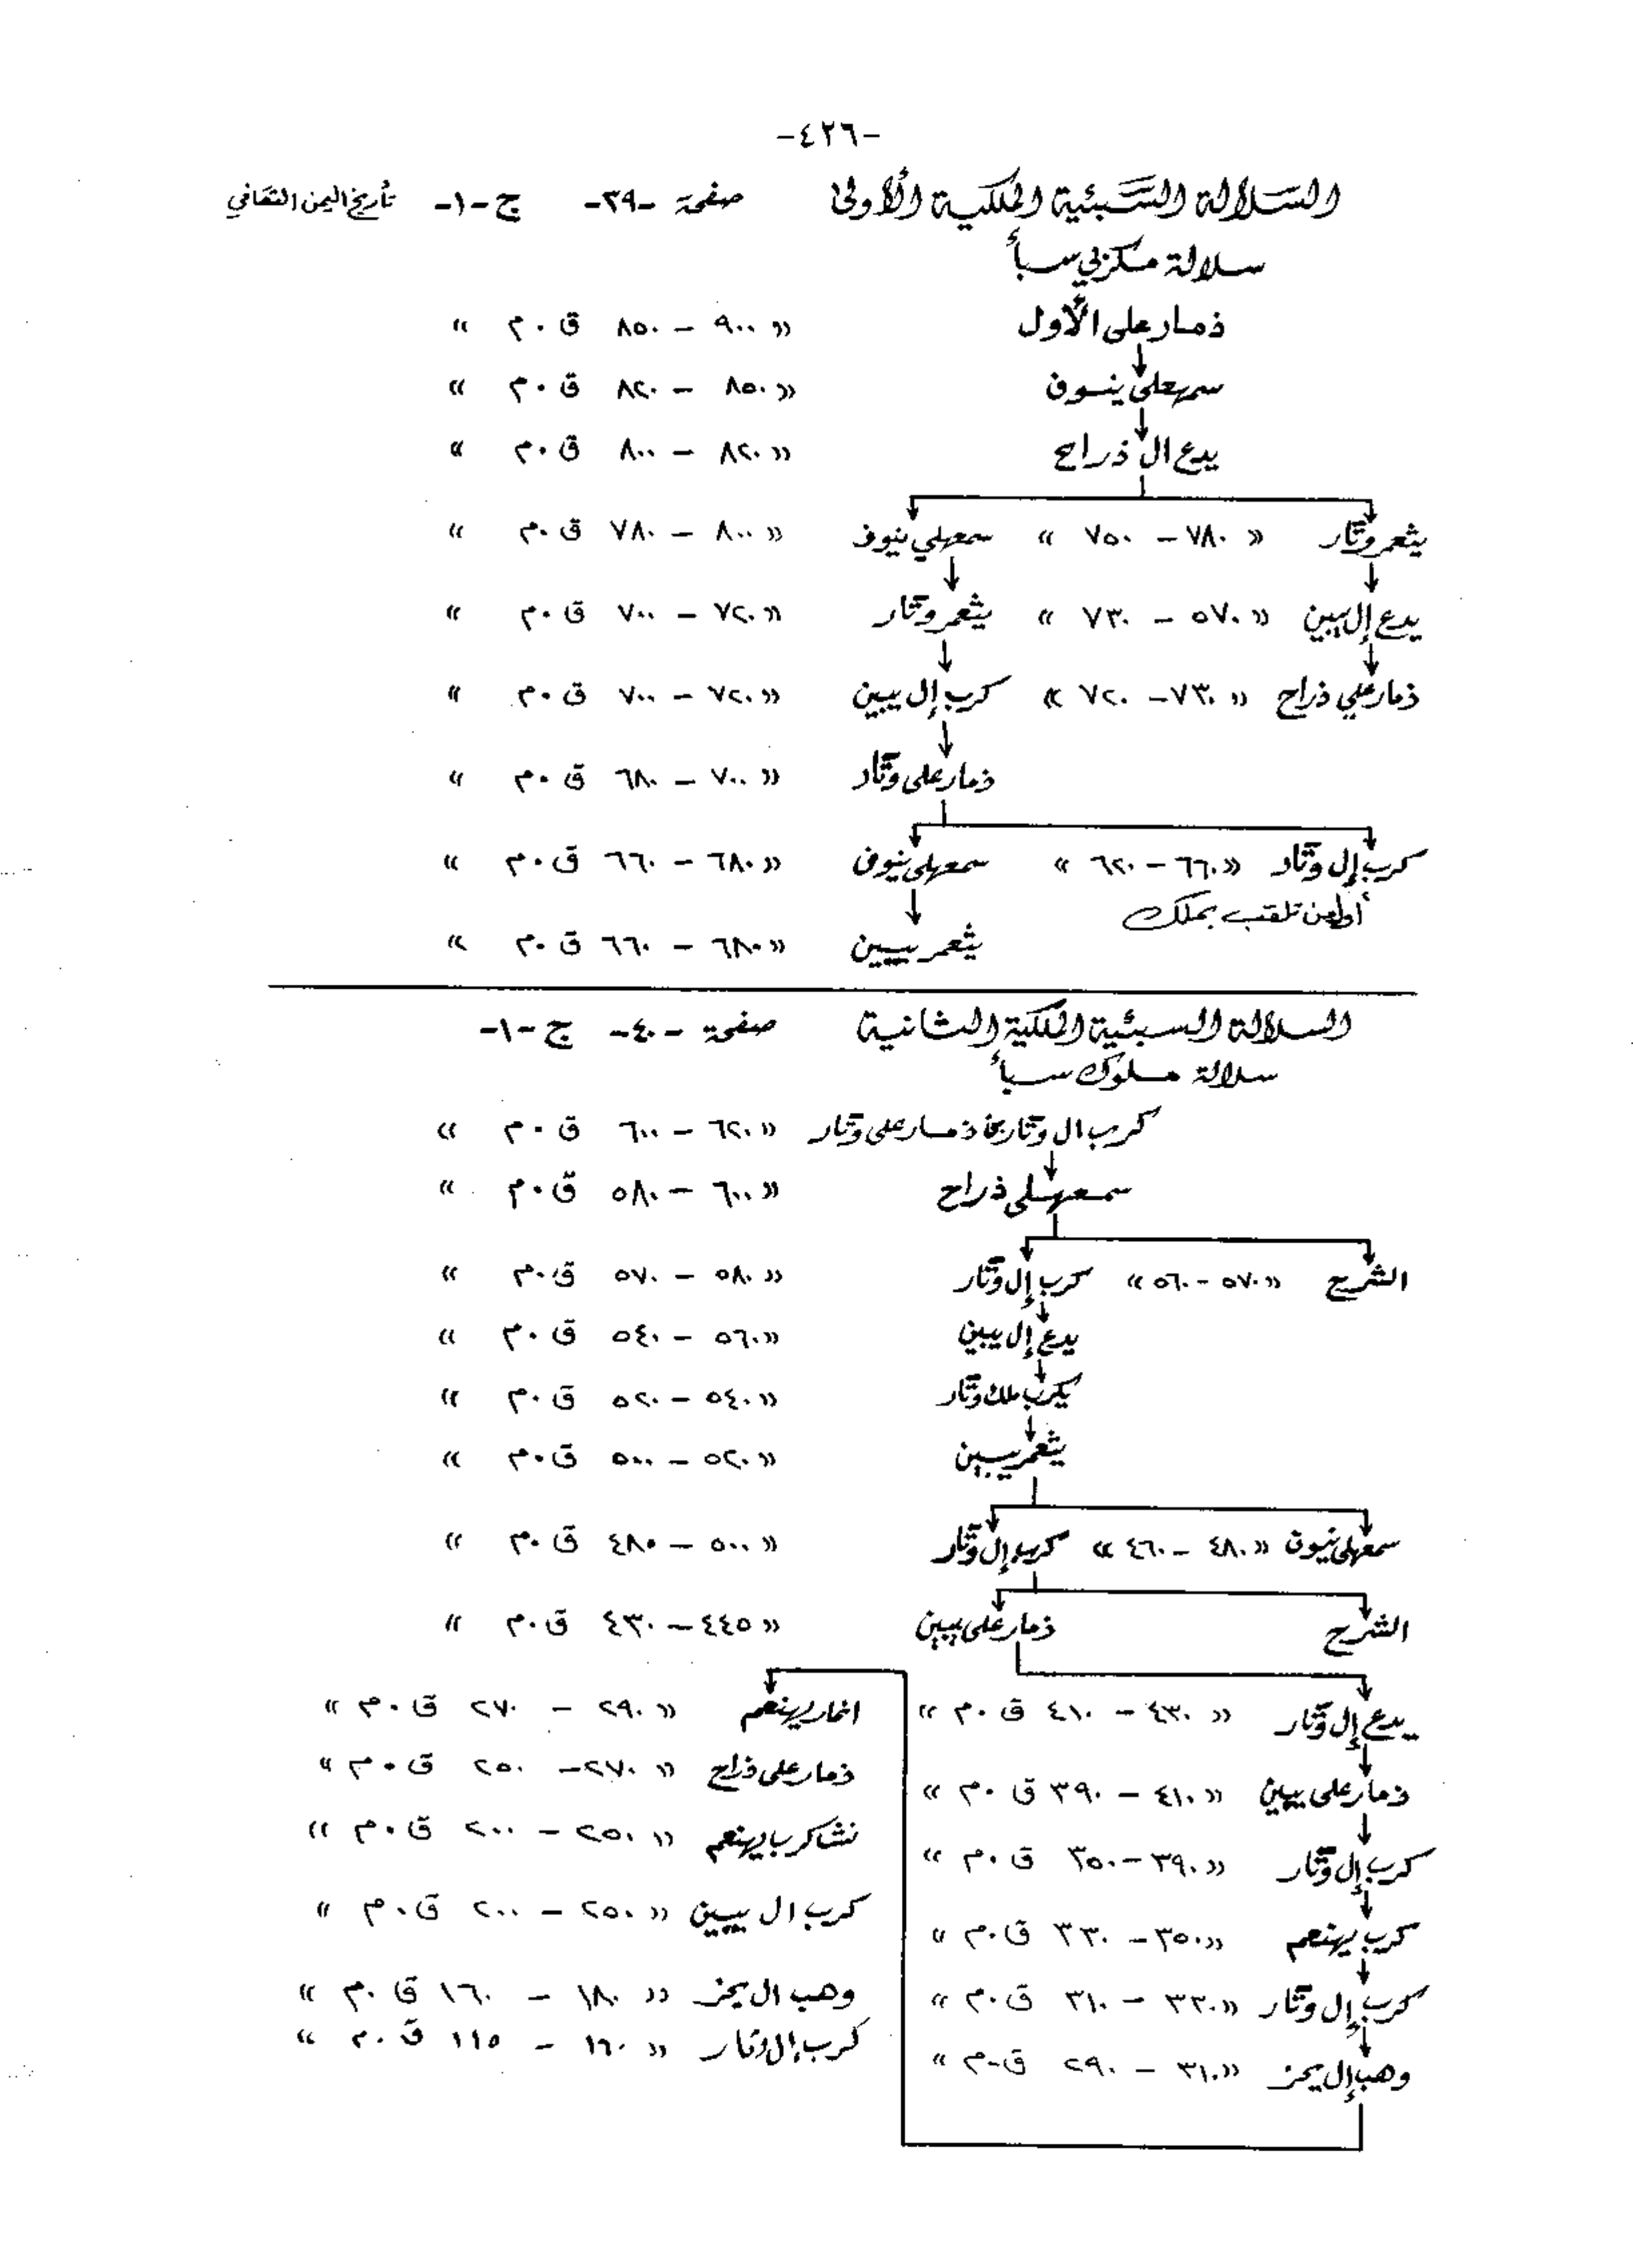 -٤٢٦-
السلالة السبئية الملكية الأولى صفحة -٣٩- ج -١- تأريخ اليمن الثقافي
سلالة مكربي سبأ
ذمار على الأول « ٩٠٠ – ٨٥٠ ق.م »
سمهعلى ينوف « ٨٥٠ – ٨٢٠ ق.م »
يدع ال ذراح « ٨٢٠ – ٨٠٠ ق.م »
يثعمر وتار « ٧٨٠ – ٧٥٠ » سمعهلي نيوف « ٨٠٠ – ٧٨٠ ق.م »
يدع إل بيين « ٥٧٠ – ٧٣٠ » يثعمر وتار « ٧٢٠ – ٧٠٠ ق.م »
ذمار علي ذراح « ٧٣٠ – ٧٢٠ » كرب إل بيين « ٧٢٠ – ٧٠٠ ق.م »
ذمار على وتار « ٧٠٠ – ٦٨٠ ق.م »
كرب إل وتار « ٦٦٠ – ٦٢٠ » سمعهلى نيوف « ٦٨٠ – ٦٦٠ ق.م »
تلقب بملك
يثعمر بيين « ٦٨٠ – ٦٦٠ ق.م »
السلالة السبئية الملكية الثانية صفحة -٤٠- ج -١-
سلالة ملوك سبأ
كرب ال وتار ذمار على وتار « ٦٢٠ – ٦٠٠ ق.م »
سمعهلى ذراح « ٦٠٠ – ٥٨٠ ق.م »
الشرح « ٥٧٠ – ٥٦٠ » كرب إل وتار « ٥٨٠ – ٥٧٠ ق.م »
يدع إل بيين « ٥٦٠ – ٥٤٠ ق.م »
يكرب ملك وتار « ٥٤٠ – ٥٢٠ ق.م »
يثعمر بيين « ٥٢٠ – ٥٠٠ ق.م »
سمعهلى نيوف « ٤٨٠ – ٤٦٠ » كرب إل وتار « ٥٠٠ – ٤٨٠ ق.م »
الشرح ذمار على بيين « ٤٤٥ – ٤٣٠ ق.م »
يدع إل وتار « ٤٣٠ – ٤١٠ ق.م »
ذمار على بيين « ٤١٠ – ٣٩٠ ق.م »
كرب إل وتار « ٣٩٠ – ٣٥٠ ق.م »
كرب يهنعم « ٣٥٠ – ٣٣٠ ق.م »
كرب إل وتار « ٣٣٠ – ٣١٠ ق.م »
وهب إل يحز « ٣١٠ – ٢٩٠ ق.م »
انمار يهنعم « ٢٩٠ – ٢٧٠ ق.م »
ذمار على ذراح « ٢٧٠ – ٢٥٠ ق.م »
نشاكرب يهنعم « ٢٥٠ – ٢٠٠ ق.م »
كرب ال بيين « ٢٥٠ – ٢٠٠ ق.م »
وهب ال يحز « ١٨٠ – ١٦٠ ق.م »
كرب إل وتار « ١٦٠ – ١١٥ ق.م »